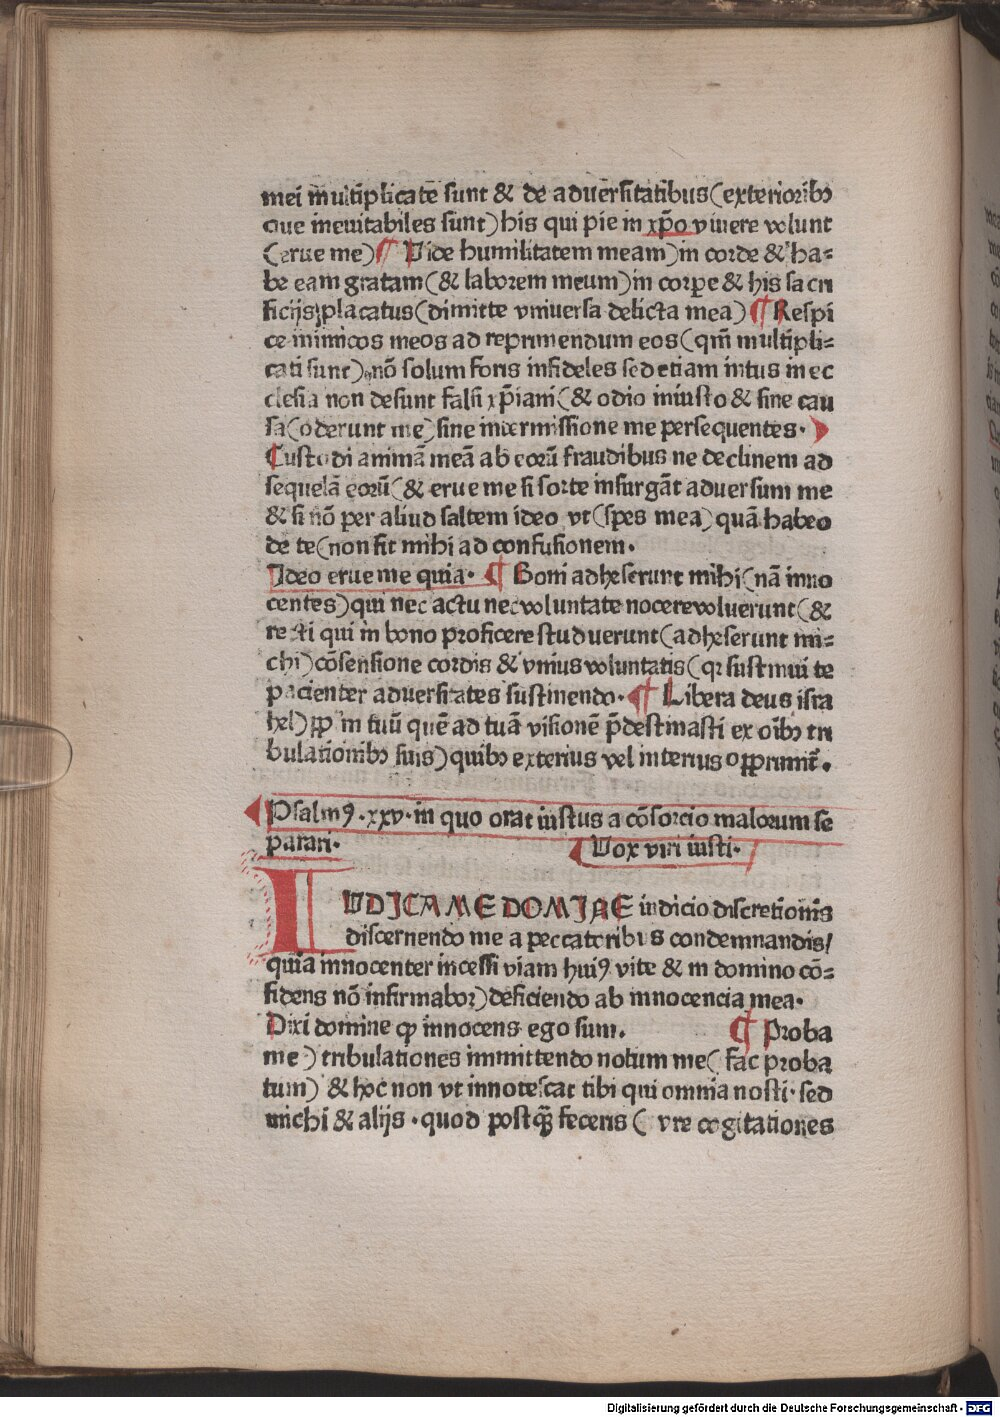 mei m̄ultiplicate sunt & de aduersitatibus (exterioribꝰ
que ineuitabiles sunt) his qui pie in xp̄o viuere volunt
(erue me) ¶ Vide humilitatem meam) in corde & ha=
be eam gratam (& laborem meum) in corpe & his sacri
ficijs placatus (dimitte vniuersa delicta mea) ¶ Respi
ce inimicos meos ad reprimendum eos (qm̄ multipli=
cati sunt) nō solum foris infideles sed etiam intus in ec
clesia non desunt falsi xp̄iani (& odio iniusto & sine cau
sa (oderunt me) sine intermissione me persequentes·
Custodi animā meā ab eorū fraudibus ne declinem ad
sequelā eorū (& erue me si forte insurgāt aduersum me
& si nō per aliud saltem ideo vt (spes mea) quā habeo
de te (non sit mihi ad confusionem·
Ideo erue me quia· ¶ Boni adheserunt mihi (nā inno
centes) qui nec actu nec voluntate nocere voluerunt (&
recti qui in bono proficere studuerunt (adheserunt mi=
chi) cōsensione cordis & vnius voluntatis (qꝛ sustinui te
pacienter aduersitates sustinendo· ¶ Libera deus isra
hel) ꝓꝑ in tuū quē ad tuā visionē p̄destinasti ex oībꝰ tri
bulationibꝰ suis) quibꝰ exterius vel interius opprimit̄·
Psalmꝰ·xxv·in quo orat iustus a cōsorcio malorum se
parari· Vox viri iusti·
IVDICA ME DOMINE iudicio discretionis
discernendo me a peccatoribus condemnandis/
quia innocenter incessi viam huiꝰ vite & in domino cō=
fidens nō infirmabor) deficiendo ab innocencia mea·
Dixi domine ꝙ innocens ego sum. ¶ Proba
me) tribulationes immittendo notum me (fac proba
tum) & hoc non vt innotescat tibi qui omnia nosti· sed
michi & alijs·quod postꝙ̄ feceris (vre cogitationes
Digitalisierung gefördert durch die Deutsche Forschungsgemeinschaft - DFG